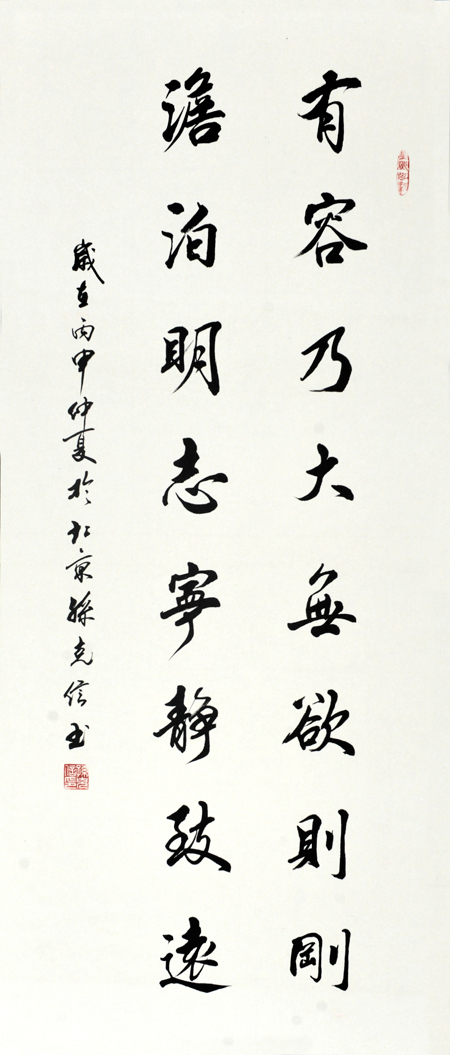 有容乃大無欲則剛
澹泊明志寧静致遠
歲在丙申仲夏於北京孫克信书